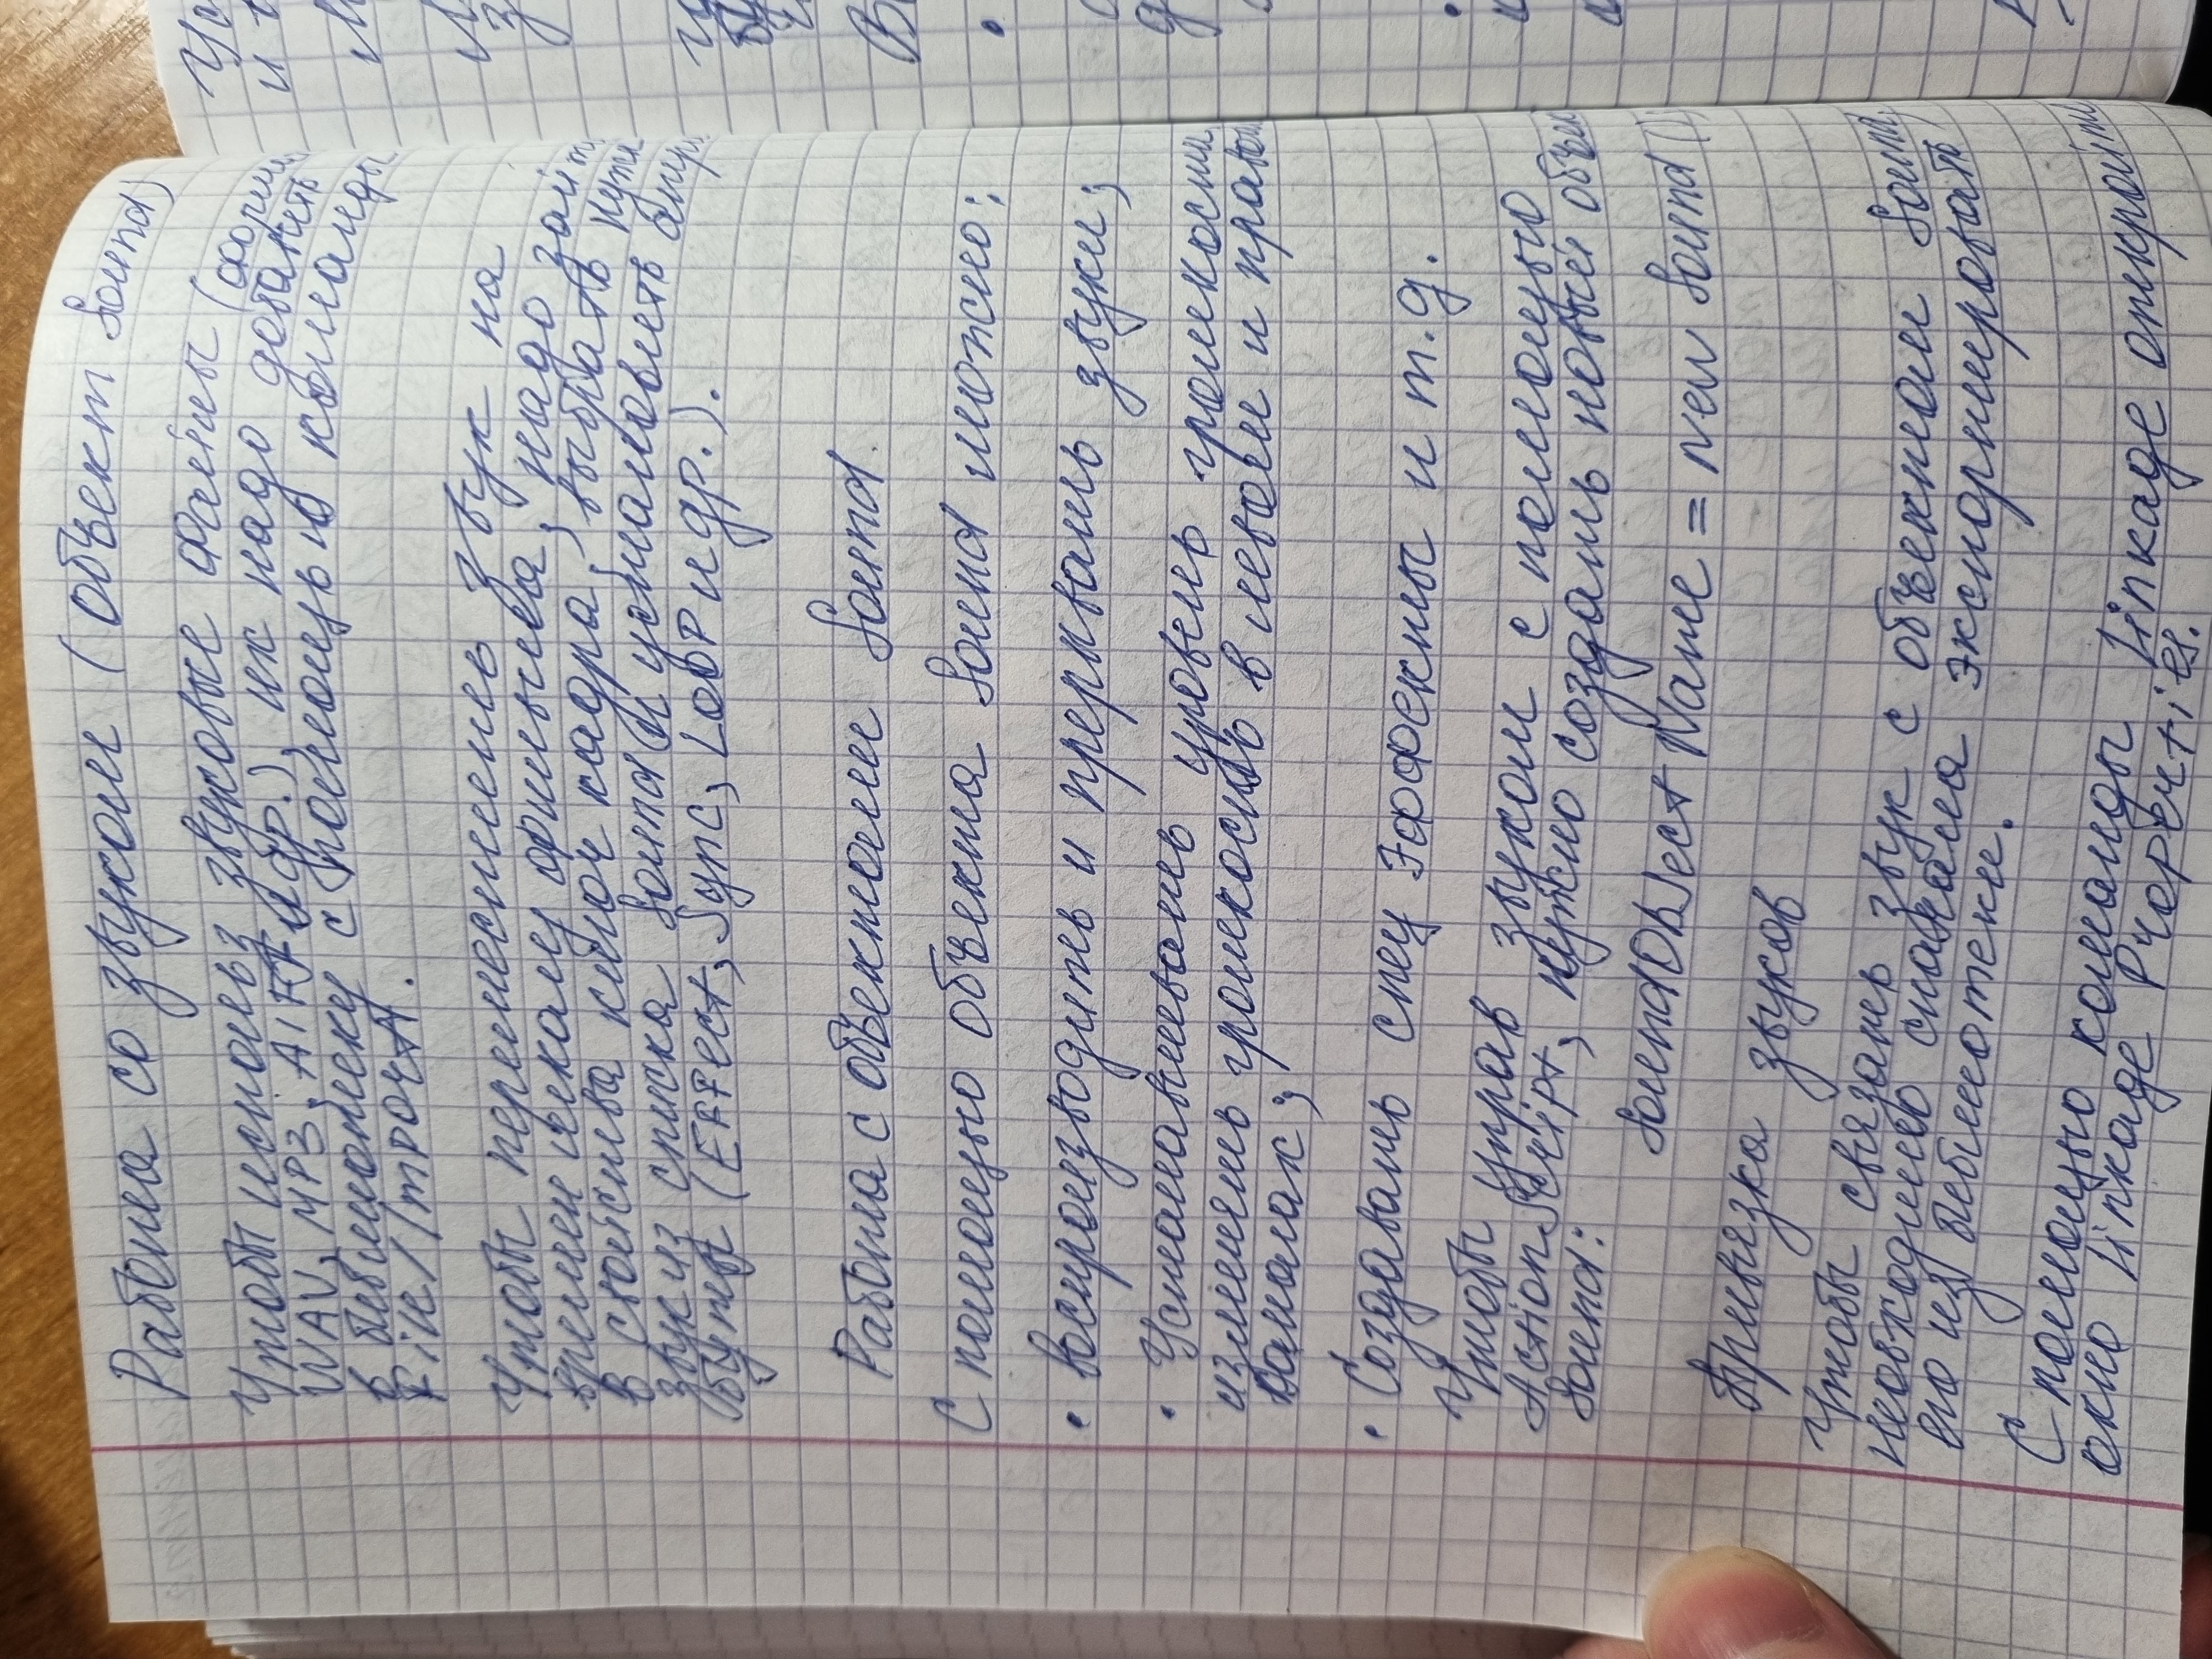 Работа со звуком (объект Sound)
Чтобы использ звуковые файлы (форм
WAV, MP3, AIFF и др.), их надо добавить
в библиотеку с помощью команды
File/Import.
Чтобы переместить звук на
времен шкалу фильма, надо зайт
в свойства ключ кадра, выбрать нужн
звук из списка Sound и установить атри
буты (Effect, Sync, Loop и др.).
Работа с объектами Sound.
С помощью объекта Sound можно:
• воспроизводить и прерывать звуки;
• Устанавливать уровень громкости,
изменять громкость в левом и правом
каналах;
• Создавать спец эффекты и т.д.
Чтобы управ звуком с помощью
ActionScript, нужно создать новый объек
Sound:
SoundObject Name = new Sound()
Привязка звуков
Чтобы связать звук с объектом Sound,
необходимо сначала экспортировать
его из библиотеки.
С помощью команды Linkage откройте
окно Linkage Properties.